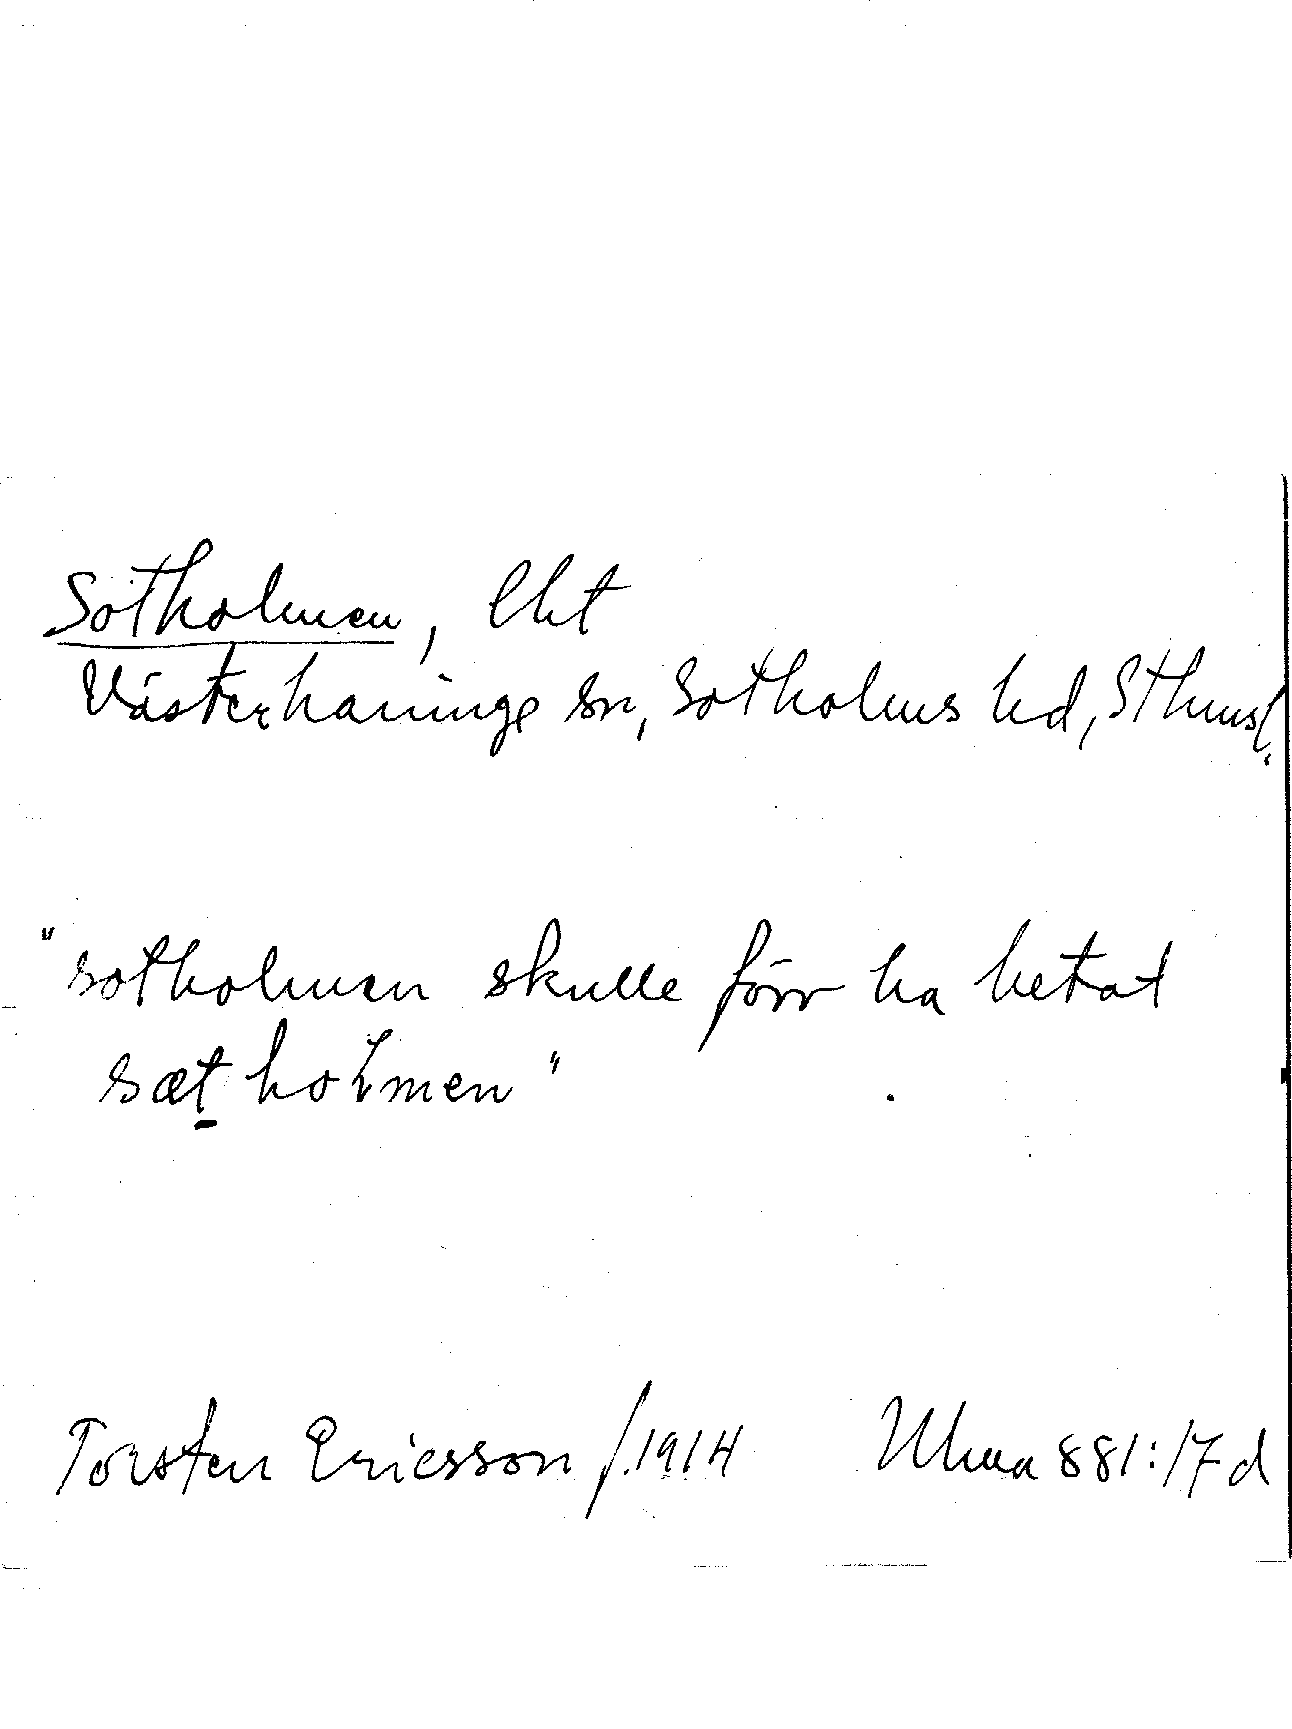 Sotholmen, lht
Västerhaninge sn, Sotholms hd, Sthmsl.
"sotholmen skulle förr ha hetat
sæt holmen"
Torsten Ericsson f. 1914 Ulma 881:17 d